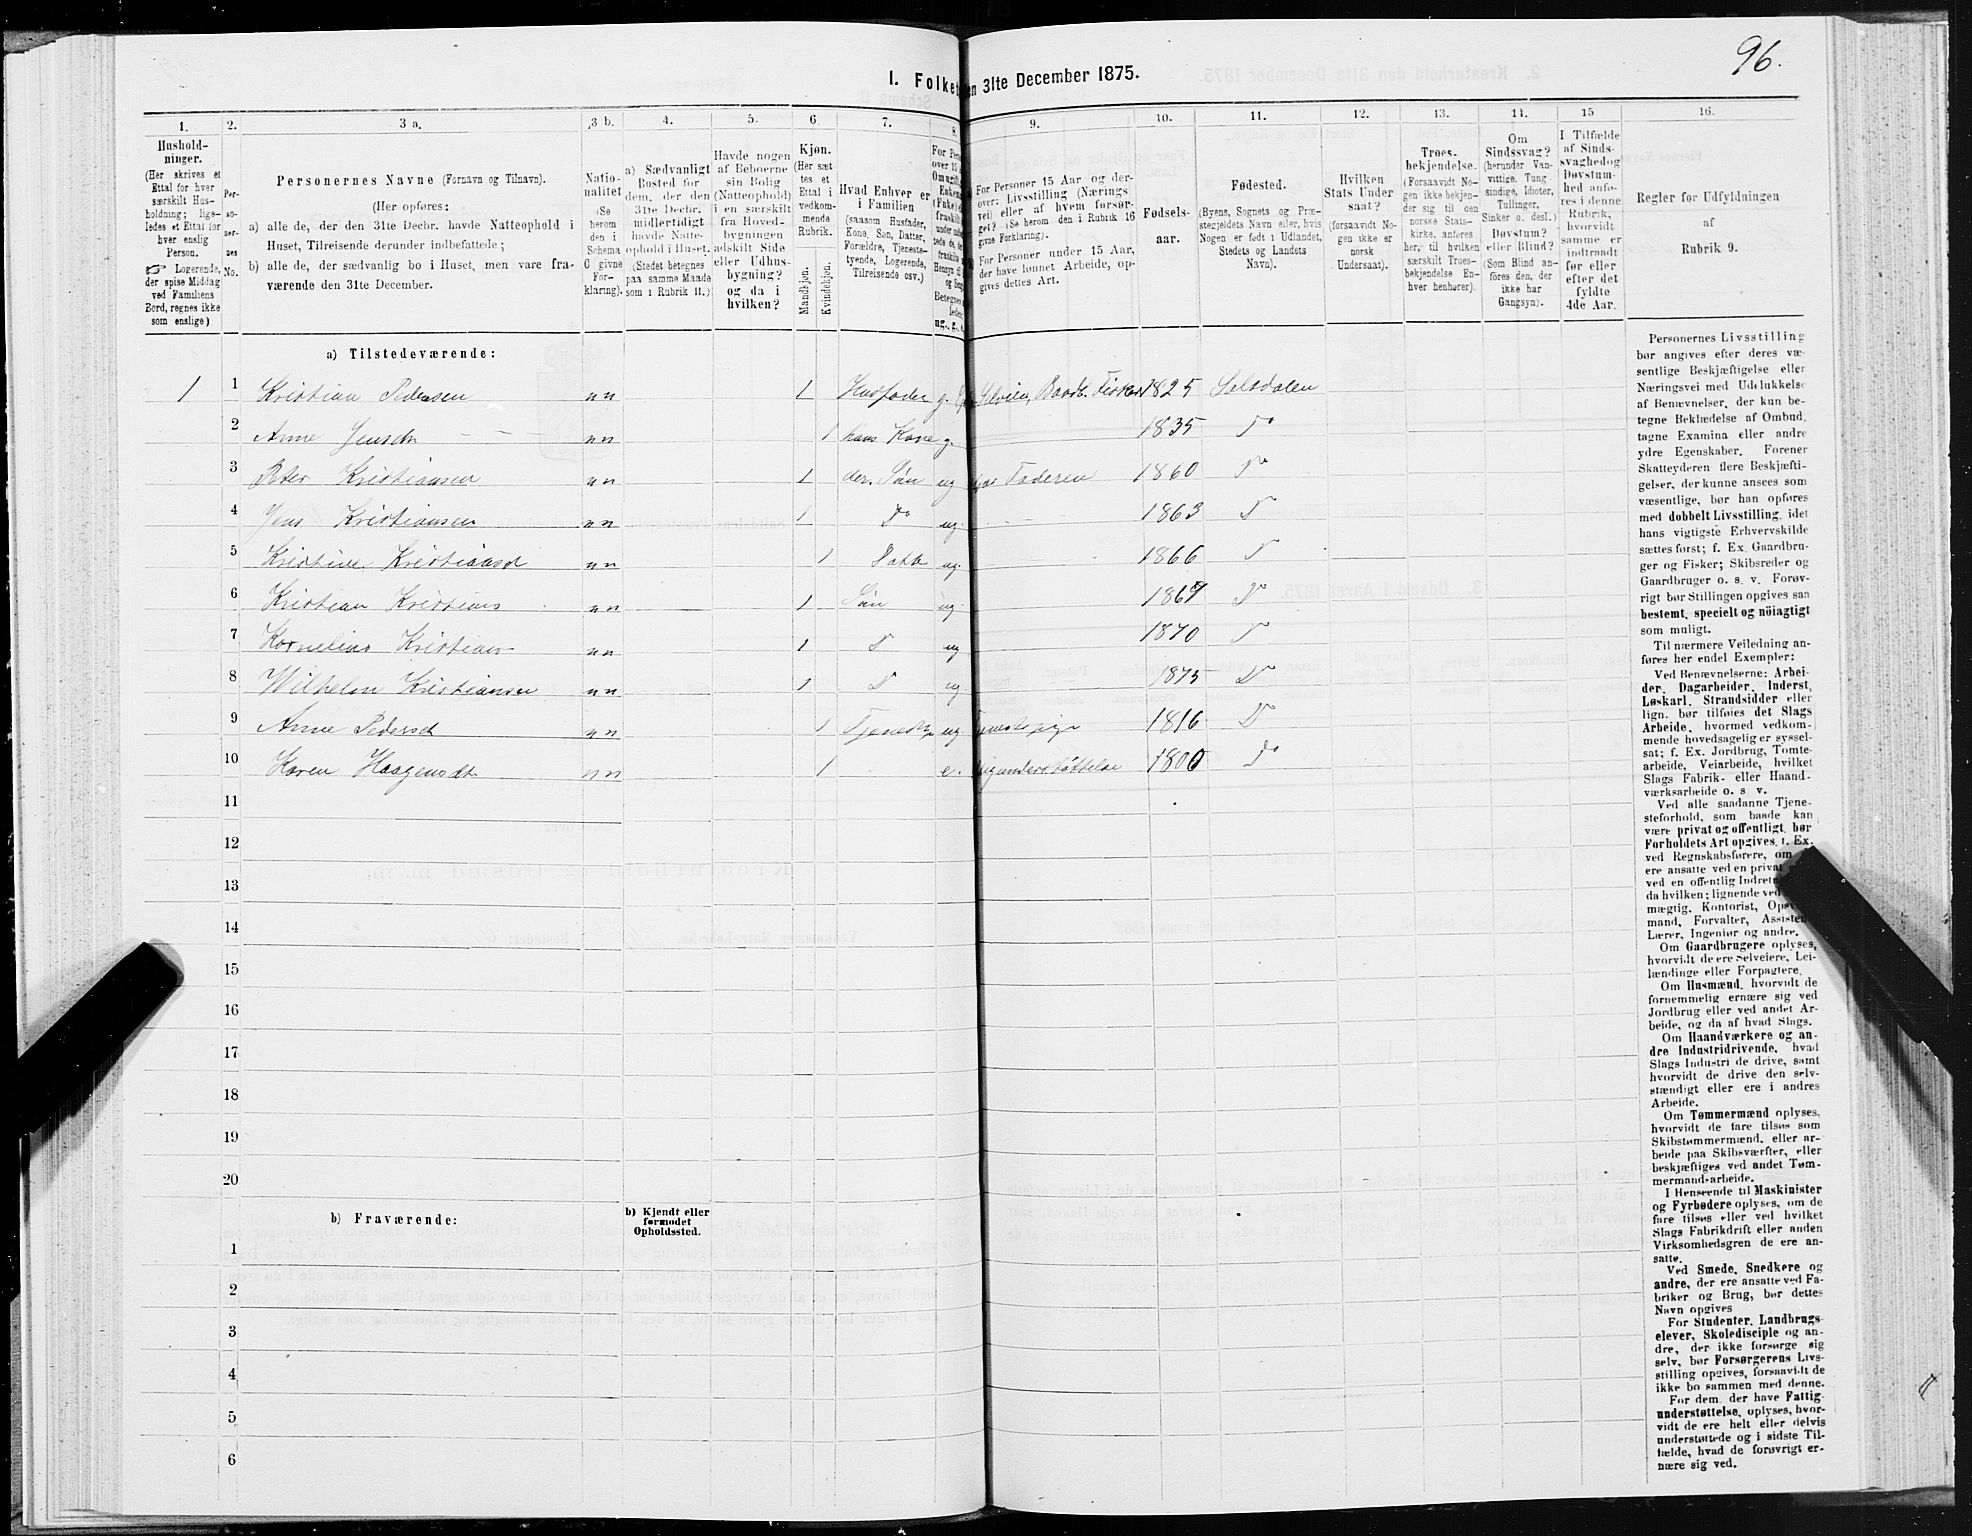 96.
I. Folket
en 31te December 1875.
1.
2.
3 a.
3 b.
4.
5.
6.
7.
8.
9.
10.
11.
12.
13.
14.
15
16.
Hushold-
ninger.
(Her skrives et
Ettal for hver
særskilt Hus-
holdning; lige-
ledes et Ettal for
hver enslig
Person.
☞ Logerende,
der spise Middag
ved Familiens
Bord, regnes ikke
som enslige)
Per-
so-
ner-
nes
No.
Personernes Navne (Fornavn og Tilnavn).
(Her opføres:
a) alle de, der den 31te Decbr. havde Natteophold i
Huset, Tilreisende derunder indbefattede;
b) alle de, der sædvanlig bo i Huset, men vare fra-
værende den 31te December.
Natio-
nalitet
(Se
herom
den i
Schema
C givne
For-
klaring).
a) Sædvanligt
Bosted for
dem, der den
31te Decbr.
midlertidigt
havde Natte-
ophold i Huset.
(Stedet betegnes
paa samme Maade
som i Rubrik 11.)
Havde nogen
af Beboerne
sin Bolig
(Natteophold)
i en særskilt
fra Hoved-
bygningen
adskilt Side
eller Udhus-
bygning?
og da i
hvilken?
Kjøn.
(Her sæt
tes et
Ettal i
vedkom-
mende
Rubrik.
Mandkjøn.
Kvindekjøn.
Hvad Enhver er
i Familien
(saasom Husfader,
Kone, Søn, Datter,
Forældre, Tjeneste-
tyende, Logerende,
Tilreisende osv.)
For Personer 15 Aar og der-
over: Livsstilling (Nærings
vei) eller af hvem forsør-
get? (Se herom den i Rubrik 16
givne Forklaring).
For Personer under 15 Aar,
der have lønnet Arbeide, op-
gives dettes Art.
Fødsels-
aar.
Fødested.
(Byens, Sognets og Præ-
stegjeldets Navn eller, hvis
Nogen er født i Udlandet,
Stedets og Landets
Navn).
Hvilken
Stats Under
saat?
(forsaavidt No-
gen ikke er
norsk
Undersaat).
Troes-
bekjendelse.
(Forsaavidt No-
gen ikke bekjen-
der sig til den
norske Stats-
kirke, anføres
her, til hvilken
særskilt Troes-
bekjendelse En-
hver henhører).
Om
Sindssvag?
(herunder Van-
vittige, Tung-
sindige, Idioter,
Tullinger,
Sinker o. desl.)
Døvstum?
eller Blind?
(Som Blind an-
føres den, der
ikke har
Gangsyn).
I Tilfælde
af Sinds-
svaghed og
Døvstum-
hed anfø-
res i denne
Rubrik,
hvorvidt
samme er
indtraadt
før eller
efter det
fyldte
4de Aar.
Regler for Udfyldningen
af
Rubrik 9.
a) Tilstedeværende:
1 1 Kristian Pedersen nn 1 Husfader g. Selveier, Baadb. Fisker 1825 Saltdalen
2 Anne Jensdr nn 1 hans Kone g. 1835 Do
3 Peter Kristiansen nn 1 der. Søn ug Faderen 1860 Do
4 Jens Kristiansen nn 1 Do ug. 1863 D
5 Kristine Kristiansd nn 1 Datt ug. 1866 D
6 Kristian Kristians nn 1 Søn ug. D
7 Kornelius Kristians nn 1 D ug 1870 D
8 Wilhelm Kristiansen nn 1 D ug. 1875 D
9 Anne Pedersd nn 1 ug 1816 D
10 Karen Haagensdt nn 1 e. 1800 Do
11
12
13
14
15
16
17
18
19
20
b) Fraværende:
b) Kjendt eller
formodet
Opholdssted.
1
2
3
4
5
6
Personernes Livsstilling
bør angives efter deres væ-
sentlige Beskjæftigelse eller
Næringsvei med Udelukkelse
af Benævnelser, der kun be-
tegne Beklædelse af Ombud,
tagne Examina eller andre
ydre Egenskaber. Forener
Skatteyderen flere Beskjæfti-
gelser, der kunne ansees som
væsentlige, bør han opføres
med dobbelt Livsstilling, idet
hans vigtigste Erhvervskilde
sættes først; f. Ex. Gaardbru-
ger og Fisker; Skibsreder og
Gaardbruger o. s. v. Forøv-
rigt bør Stillingen opgives saa
bestemt, specielt og nöiagtigt
som muligt.
Til nærmere Veiledning an-
føres her endel Exempler:
Ved Benævnelserne: Arbei-
der, Dagarbeider, Inderst,
Løskarl, Strandsidder eller
lign. bør tilføies det Slags
Arbeide, hvormed vedkom-
mende hovedsagelig er syssel-
sat; f. Ex. Jordbrug, Tomte-
arbeide, Veiarbeide, hvilket
Slags Fabrik- eller Haand-
værksarbeide o. s v.
Ved alle saadanne Tjene-
steforhold, som baade kan
være privat og offentligt, bør
Forholdets Art opgives, f. Ex.
ved Regnskabsførere, om
ere ansatte ved en privat
ved en offentlig
da hvilken; lignende ved
mægtig, Kontorist,
mand, Forvalter,
Lærer, Ingeniør og andre.
Om Gaardbrugere oplyses,
hvorvidt de ere Selveiere, Lei-
lændinge eller Forpagtere.
Om Husmænd, hvorvidt de
fornemmelig ernære sig ved
Jordbrug eller ved andet Ar-
beide, og da af hvad Slags.
Om Haandværkere og an-
dre Industridrivende, hvad
Slags Industri de drive, samt
hvorvidt de drive den selv-
stændigt eller ere i andres
Arbeide.
Om Tømmermænd oplyses,
hvorvidt de fare tilsøs som
Skibstømmermænd, eller ar-
beide paa Skibsværfter, eller
beskjæftiges ved andet Tøm-
mermandsarbeide.
I Henseende til Maskinister
og Fyrbødere oplyses, om de
fare tilsøs eller ved hvilket
Slags Fabrikdrift eller anden
Virksomhedsgren de ere an-
satte.
Ved Smede, Snedkere og
andre, der ere ansatte ved Fa-
briker og Brug, bør dettes
Navn opgives
For Studenter, Landbrugs-
elever, Skoledisciple og an-
dre, der ikke forsørge sig
selv, bør Forsørgerens Livs-
stilling opgives, forsaavidt de
ikke bo sammen med denne.
For dem, der have Fattig-
understøttelse, oplyses, hvor-
vidt de ere helt eller delvis
understøttede og i sidste Til-
fælde, hvad de forøvrigt er-
nære sig ved.